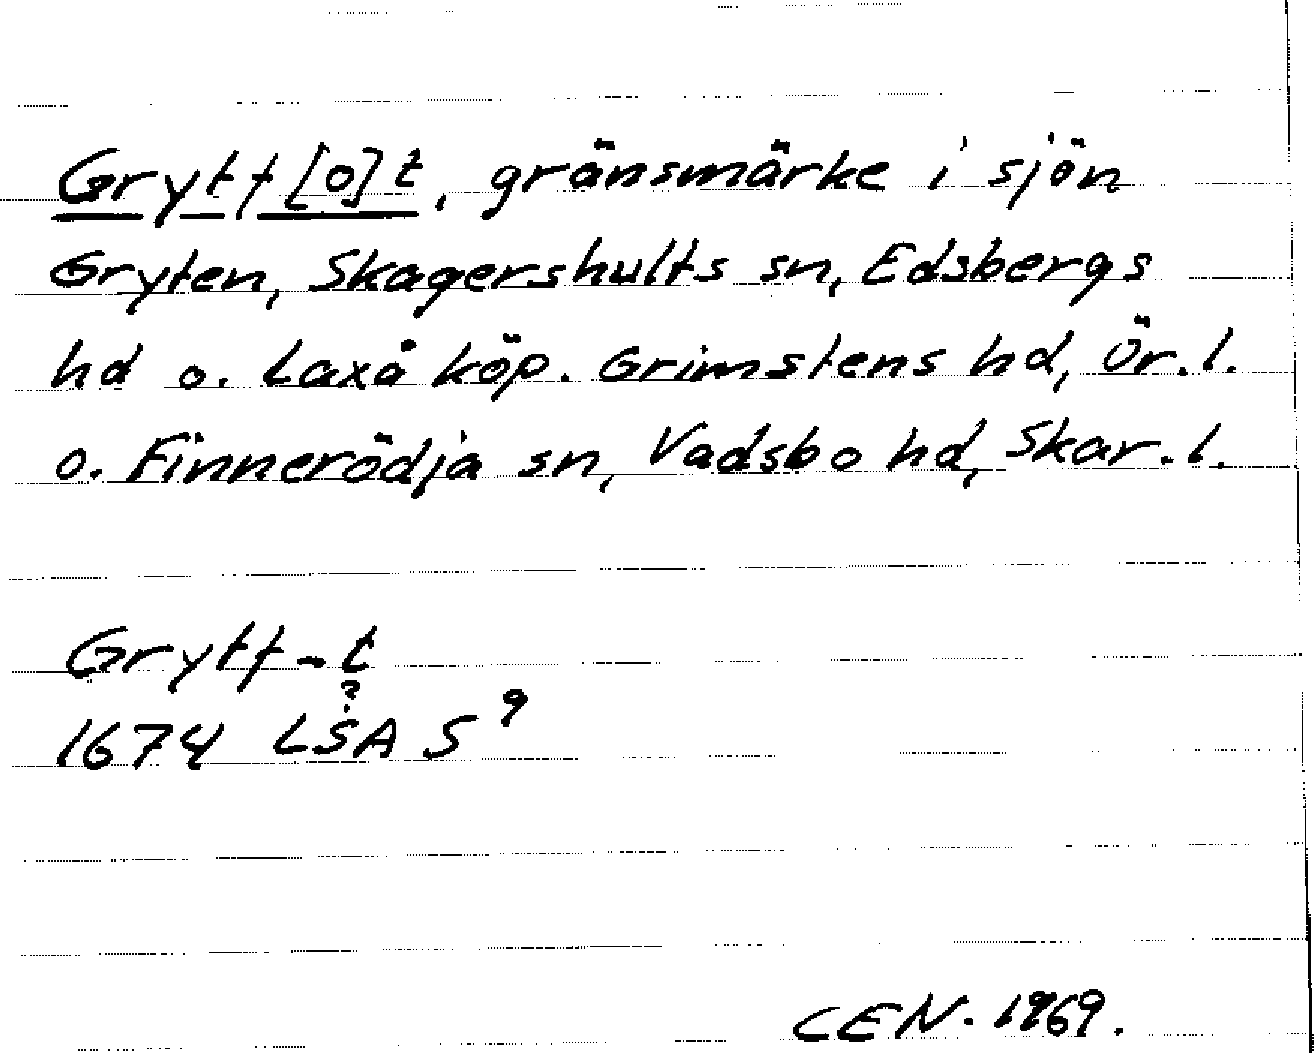 Grytf[o]t, gränsmärke i sjön
Gryten, Skagershults sn, Edsbergs
hd o. Laxå köp. Grimstens hd, Ör.l.
o. Finnerödja sn, Vadsbo hd, Skar.l.
Grytf-t
?
1674 LSA S⁹
CEN. 1969.